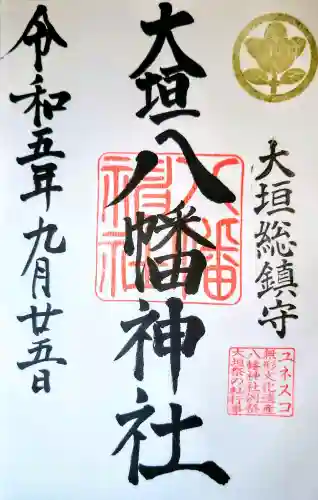 大垣総鎮守
大垣八幡神社
八幡
神社
令和五年九月廿五日
ユネスコ
無形文化遺産
八幡神社例祭
大垣祭の軕行事